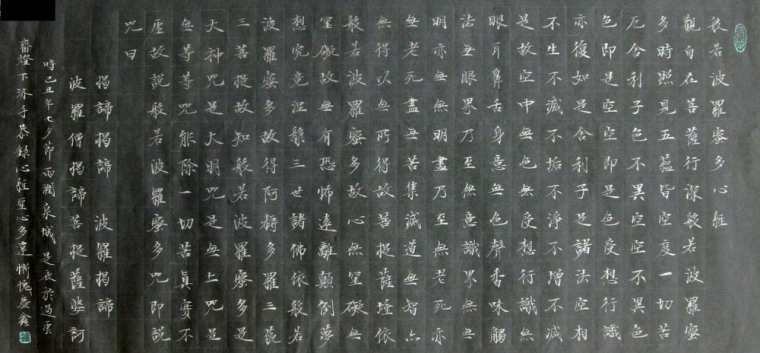 般若波羅蜜多心經
觀自在菩薩行深般若波羅蜜
多時照見五蘊皆空度一切苦
厄舍利子色不異空空不異色
色即是空空即是色受想行識
亦復如是舍利子諸法空相
不生不滅不垢不淨不增不減
是故空中無色無受想行識無
眼耳鼻舌身意無色聲香味觸
法無眼界乃至無意識界無無
明亦無無明盡乃至無老死亦
無老死盡無苦集滅道無智亦
無得以無所得故菩提薩埵依
般若波羅蜜多故心無罣礙無
罣礙故無有恐怖遠離顛倒夢
想究竟涅槃三世諸佛依般若
波羅蜜多故得阿耨多羅三藐
三菩提故知般若波羅蜜多是
大神咒是大明咒是無上咒是
無等等咒能除一切苦真實不
虛故說般若波羅蜜多咒即說
咒曰
揭諦揭諦 波羅揭諦
波羅僧揭諦菩提薩婆訶
時己丑年七夕節西湖泉城是夜於過雲
齋燈下沐手恭錄心經至心多慚愧慶鑫